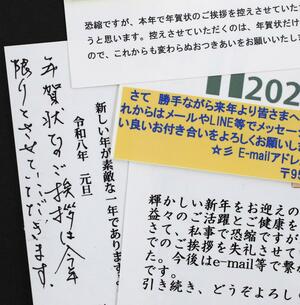 恐縮ですが、本年で年賀状のご挨拶を控えさせていた
うと思います。控えさせていただくのは、年賀状だけ
ので、これからも変わらぬおつきあいをお願いいたし
202
さて 勝手ながら来年より皆さまへ
れからはメールやLINE等でメッセー
い良いお付き合いをよろしくお願いし
☆彡 E-mailアドレ
〒95
新しい年が素敵な一年であります
令和八年 元旦
年賀状でのご挨拶は今年
限りとさせていただきます。
輝かしい新年をお迎えの
益々のご活躍とご健康を
さて、私事で恐縮ですが
でのご挨拶を失礼させて
た。今後はe-mail等で繋
です。
引き続き、どうぞよろし